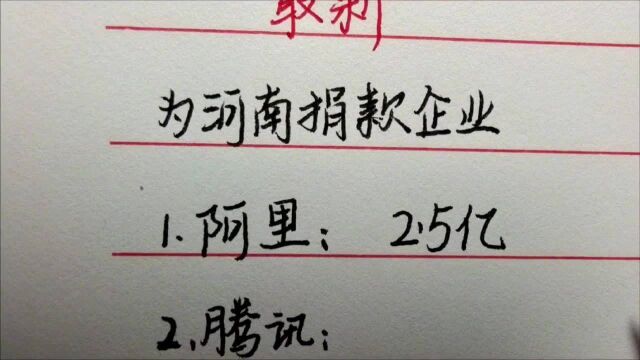 最新
为河南捐款企业
1.阿里： 2.5亿
2.腾讯：